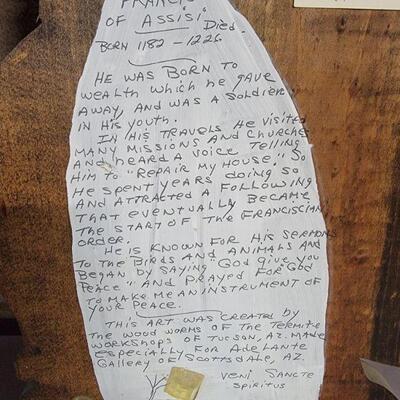 FRANCIS
OF ASSISI
Died.
BORN 1182 - 1226
HE WAS BORN TO
WEALTH WHICH he gave
AWAY, AND WAS A SOLDIER
IN HIS YOUTH.
IN HIS TRAVELS HE VISITED
MANY MISSIONS AND CHURCHES
AND HEARD A VOICE TELLING
HIM TO "REPAIR MY HOUSE." SO
HE SPENT YEARS DOING SO
AND ATTRACTED A FOLLOWING
THAT EVENTUALLY BECAME
THE START OF THE FRANCISCIAN
ORDER.
HE IS KNOWN FOR HIS SERMONS
TO THE BIRDS AND ANIMALS AND
BEGAN BY SAYING "GOD GIVE YOU
PEACE" AND PRAYED FOR GOD
TO MAKE ME AN INSTRUMENT OF
YOUR PEACE.
THIS ART WAS CREATED BY
THE WOOD WORMS OF THE TERMITE
WORKSHOPS OF TUCSON, AZ. MADE
ESPECIALLY FOR ADELANTE
GALLERY OF SCOTTSDALE, AZ.
VENI SANCTE
SPIRITUS